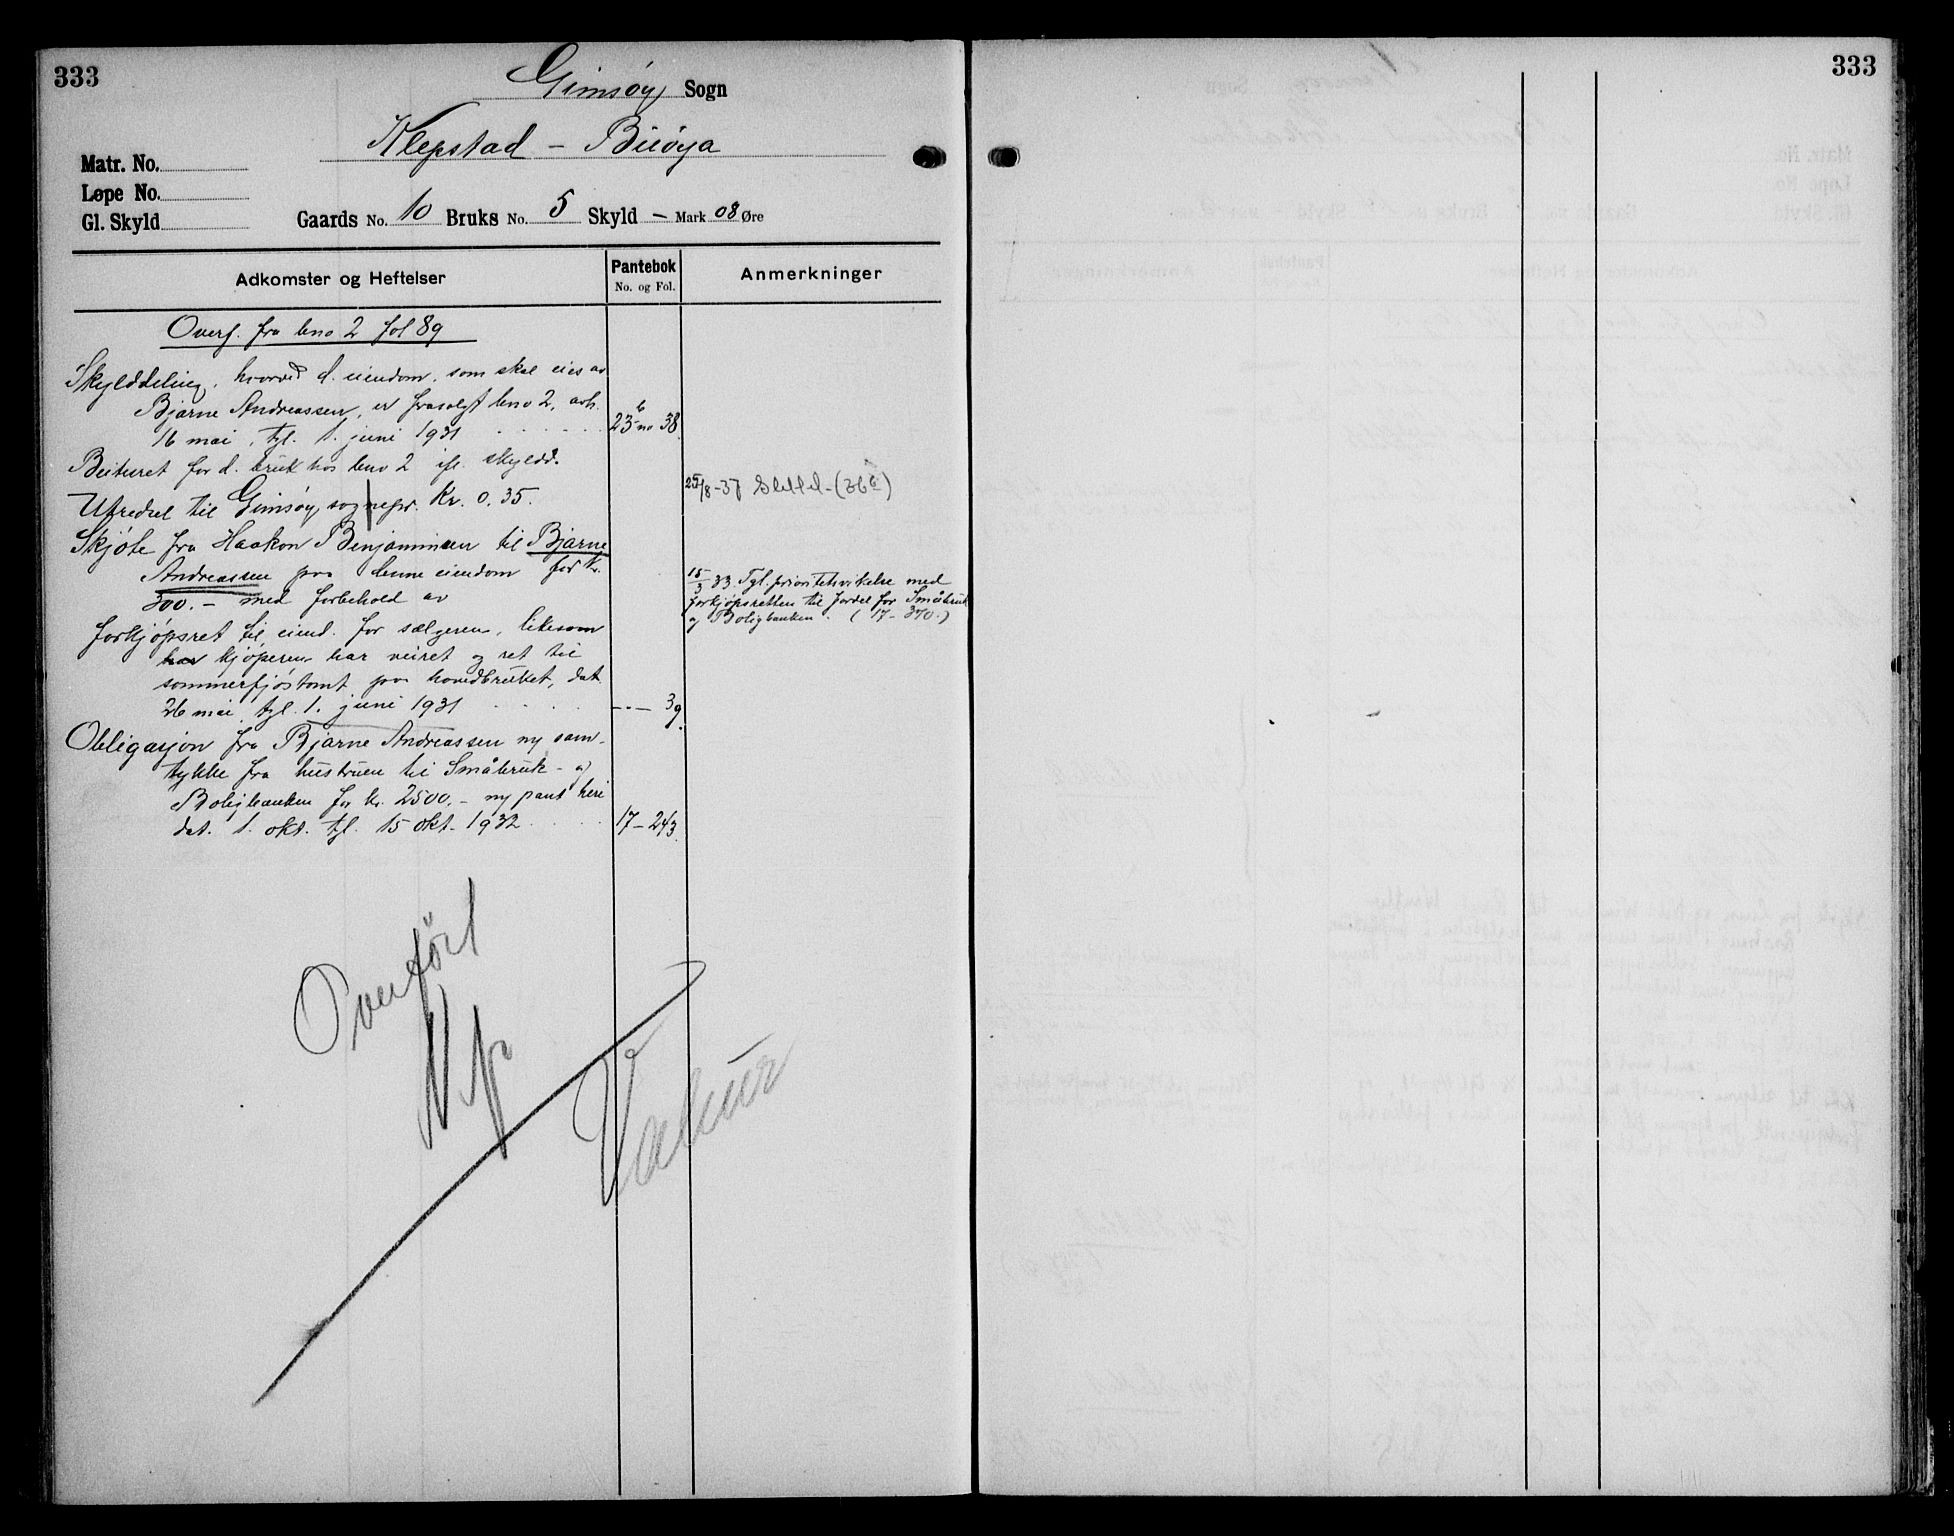 333
Gimsøy Sogn
Klepstad - Buøya
Matr. No.
Løpe No.
Gl. Skyld
Gaards No. 10 Bruks No. 5 Skyld - Mark 08 Øre
Adkomster og Heftelser
Pantebok
No. og Fol.
Anmerkninger
Overf. fra bno 2 fol 89
Skylddeling, hvorved d. eiendom, som skal eies av
Bjarne Andreassen, er frasolgt bno 2, avh.
16 mai, tgl. 1. juni 1931
23 b no 38.
Beiteret for d. bruk hos bno 2 ifl. skyldd.
Utredsel til Gimsøy sognepr. Kr. 0.35.
25/8-37 Slettet (36
Skjøte fra Haakon Benjaminsen til Bjarne
Andreassen paa denne eiendom for kr.
300.- med forbehold av
forkjøpsret til eiend. for sælgeren, likesom
har kjøperen har veiret og ret til
sommerfjøstomt paa hovedbruket, dat.
26 mai, tgl. 1. juni 1931
-"- 39.
15/3 33. Tgl. prioritetsvikelse med
forkjøpsretten til fordel for Småbruk
og Boligbanken. (17-370.)
Obligasjon fra Bjarne Andreassen m/ sam-
tykke fra hustruen til Småbruk- og
Boligbanken for kr. 2500.- m/ pant heri
dat. 1. okt. tgl. 15 okt. 1932
17-243.
Overført
Vakuer
333